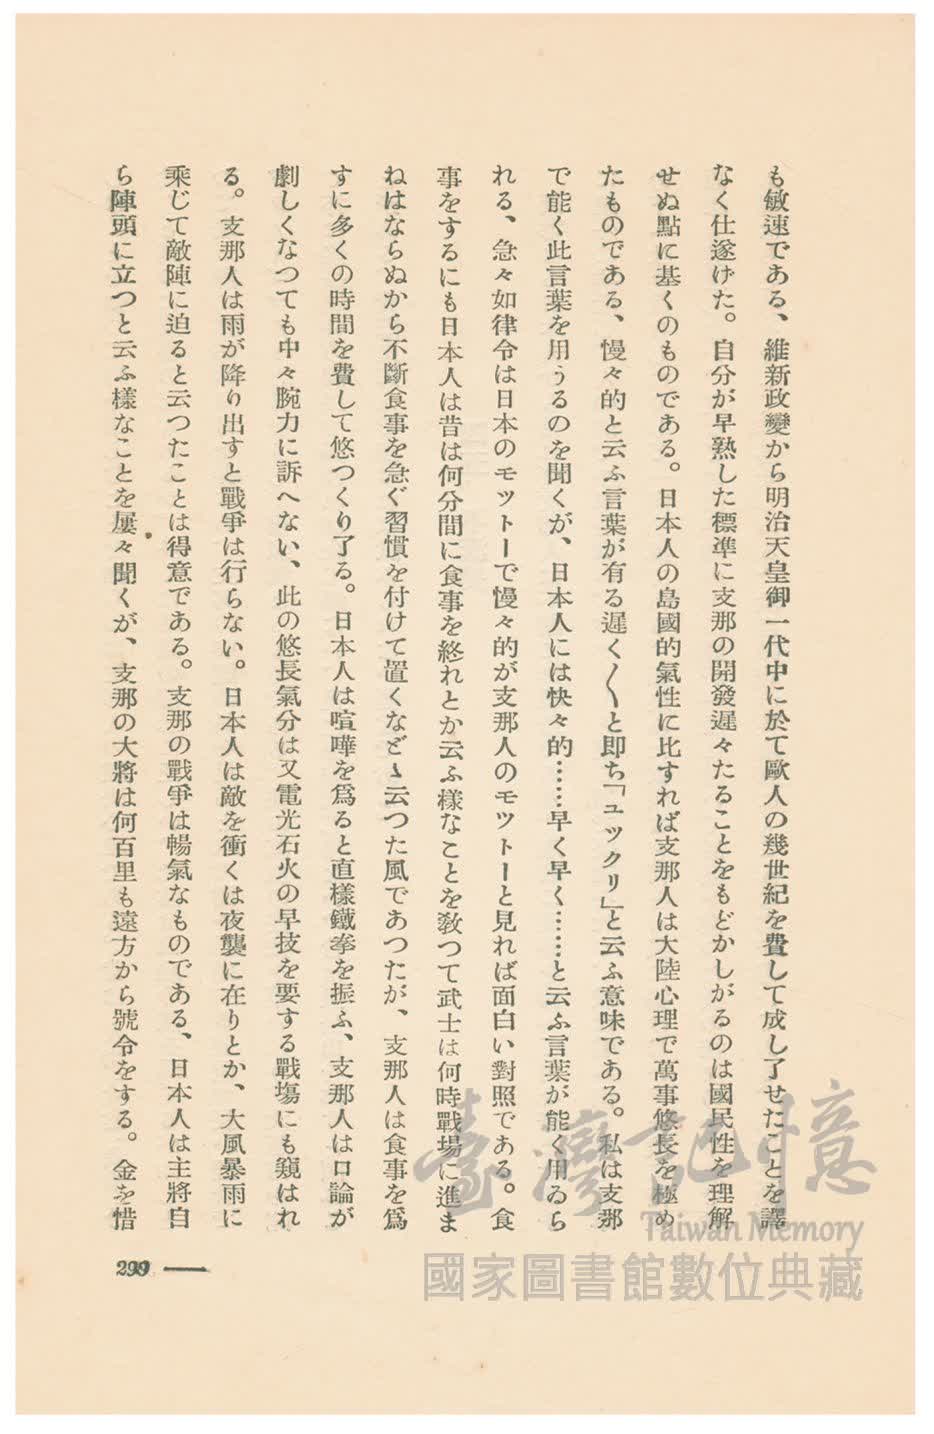 も敏速である、維新政變から明治天皇御一代中に於て歐人の幾世紀を費して成し了せたことを譯
なく仕遂げた。自分が早熟した標準に支那の開發遲々たることをもどかしがるのは國民性を理解
せぬ點に基くのものである。日本人の島國的氣性に比すれば支那人は大陸心理で萬事悠長を極め
たものである、慢々的と云ふ言葉が有る遲く〱と即ち「ユックリ」と云ふ意味である。私は支那
で能く此言葉を用うるのを聞くが、日本人には快々的……早く早く……と云ふ言葉が能く用ゐら
れる、急々如律令は日本のモットーで慢々的が支那人のモットーと見れば面白い對照である。食
事をするにも日本人は昔は何分間に食事を終れとか云ふ樣なことを敎つて武士は何時戰場に進ま
ねはならぬから不斷食事を急ぐ習慣を付けて置くなどゝ云つた風であつたが、支那人は食事を爲
すに多くの時間を費して悠つくり了る。日本人は喧嘩を爲ると直樣鐵拳を振ふ、支那人は口論が
劇しくなつても中々腕力に訴へない、此の悠長氣分は又電光石火の早技を要する戰場にも窺はれ
る。支那人は雨が降り出すと戰爭は行らない。日本人は敵を衝くは夜襲に在りとか、大風暴雨に
乘じて敵陣に迫ると云つたことは得意である。支那の戰爭は暢氣なものである、日本人は主將自
ら陣頭に立つと云ふ樣なことを屢々聞くが、支那の大將は何百里も遠方から號令をする。金を惜
299 —
臺灣記憶
Taiwan Memory
國家圖書館數位典藏